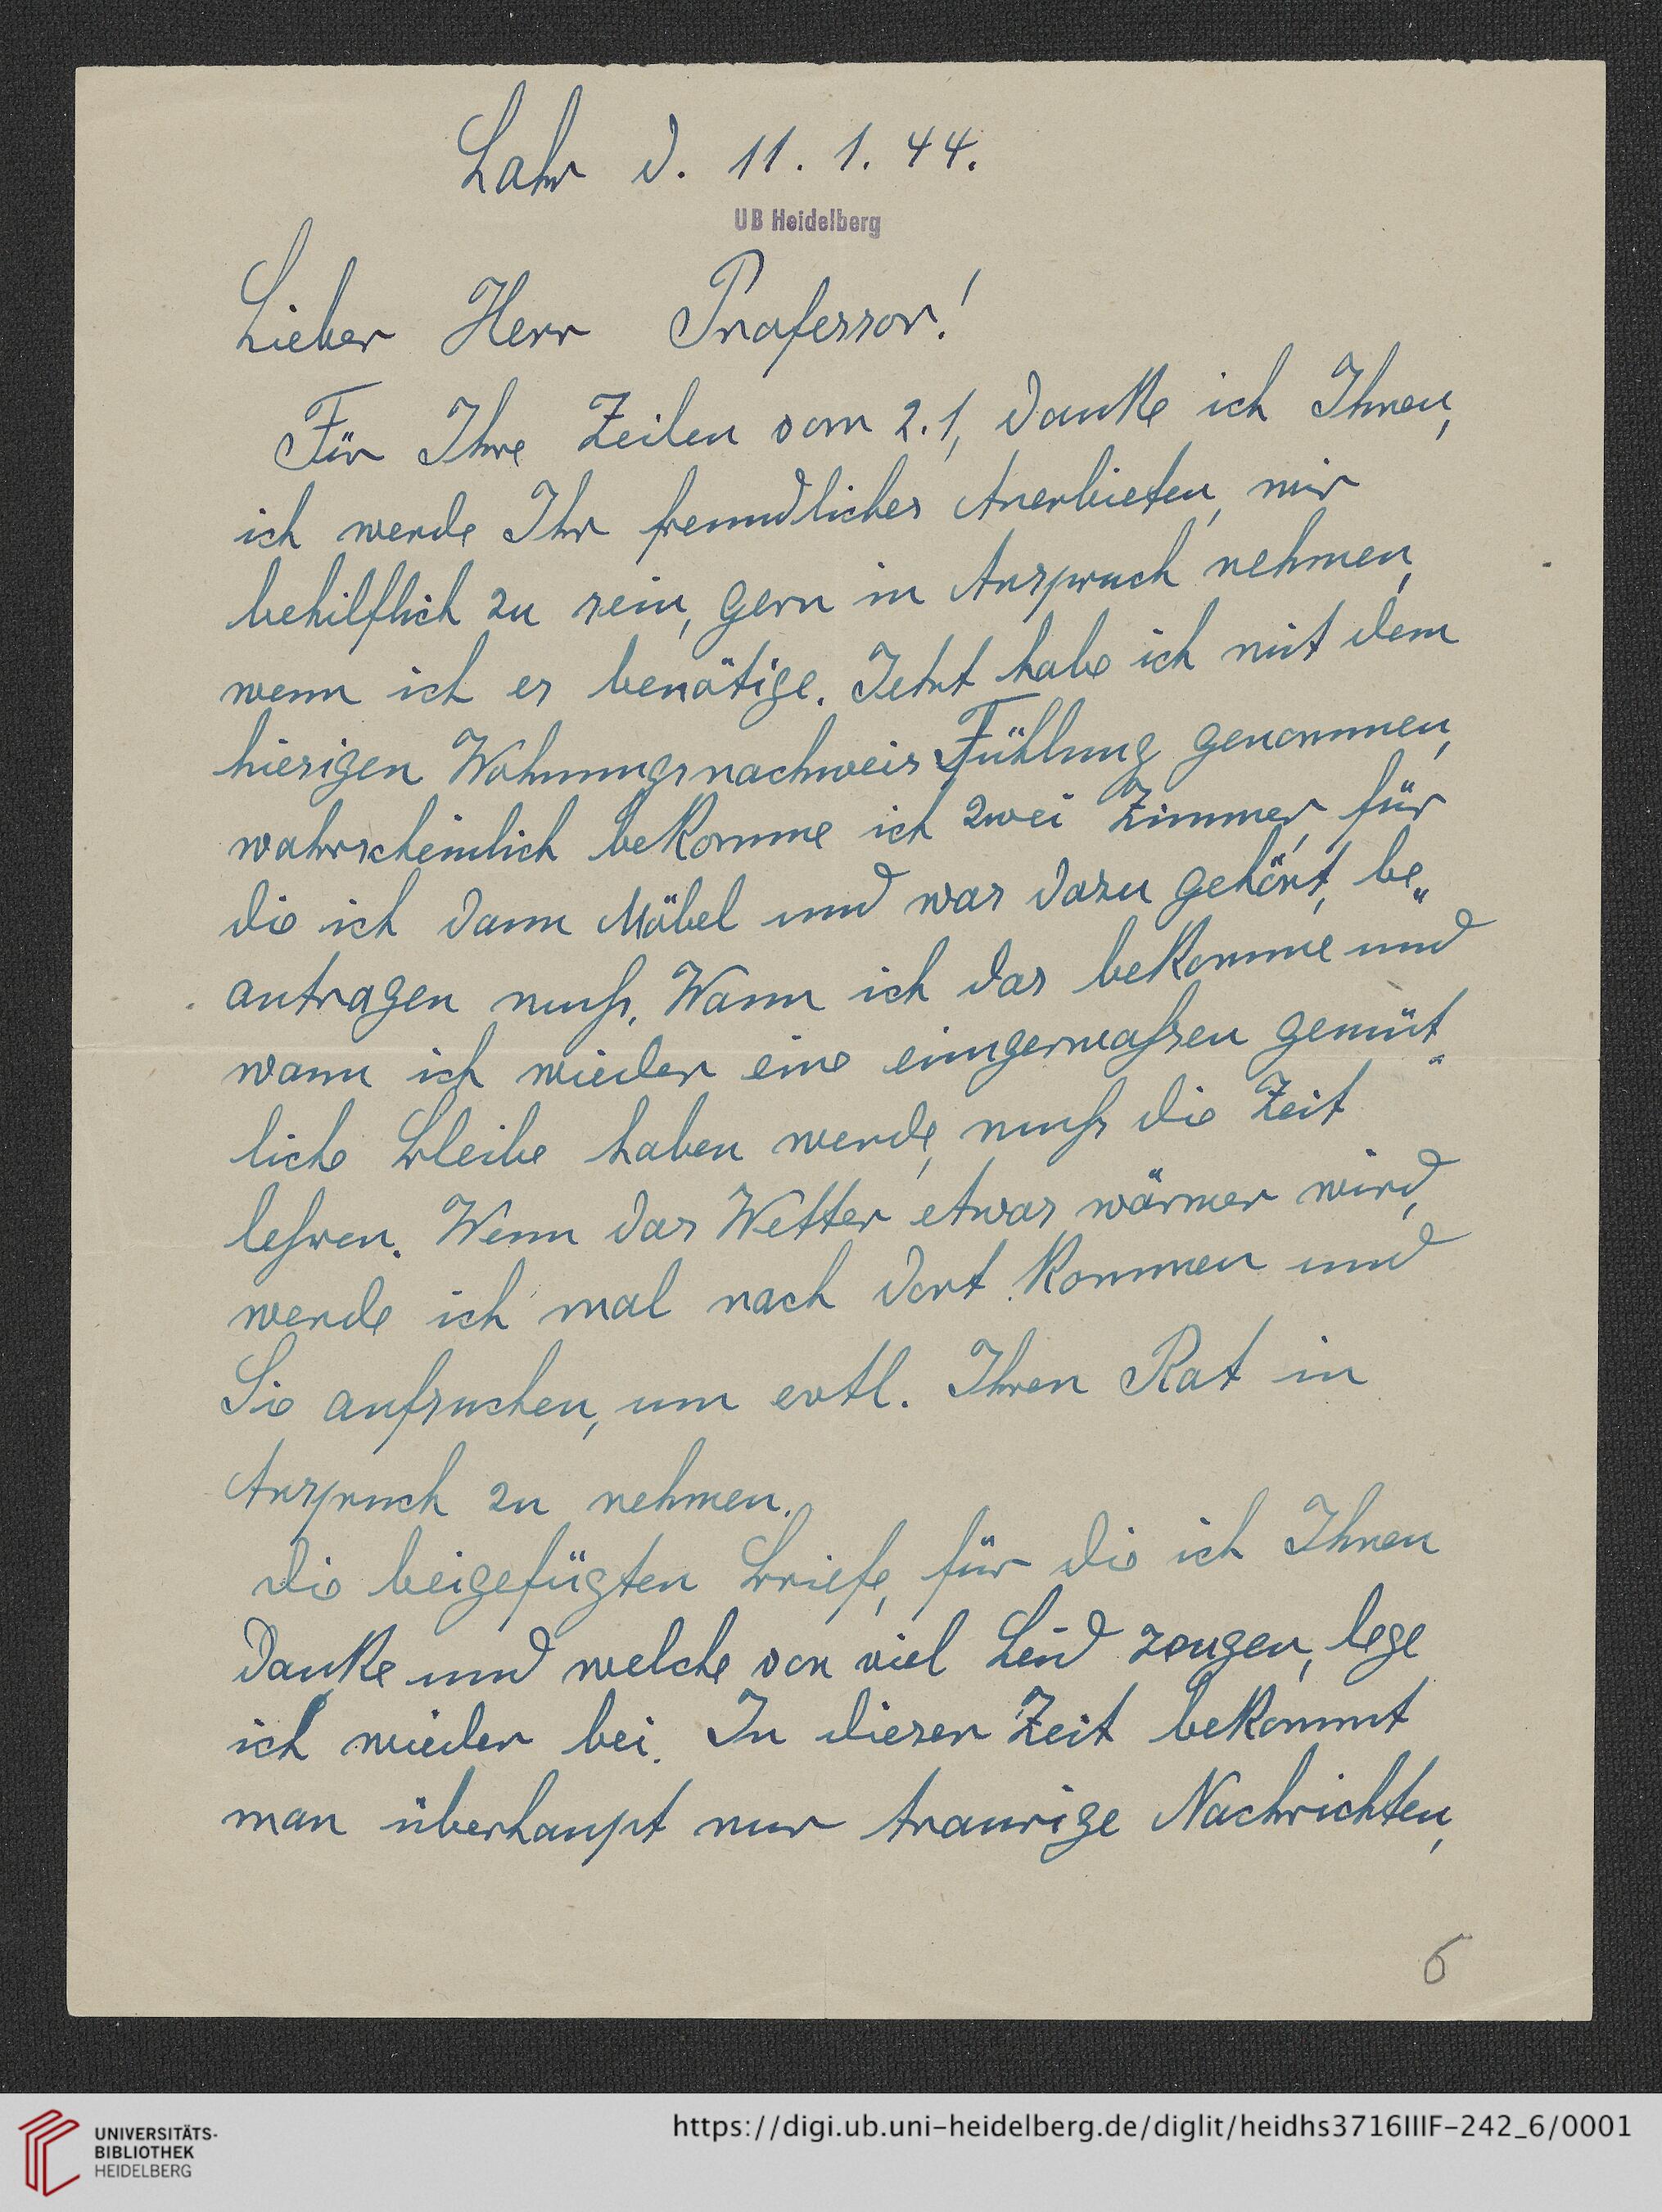 Lahr d. 11. 1. 44.
UB Heidelberg
Lieber Herr Professor!
Für Ihre Zeilen vom 2.1, danke ich Ihnen,
ich werde Ihr freundliches Anerbieten, mir
behilflich zu sein, gern in Anspruch nehmen,
wenn ich es benötige. Jetzt habe ich mit dem
hiesigen Wohnungsnachweis Fühlung genommen,
wahrscheinlich bekomme ich zwei Zimmer, für
die ich dann Möbel und was dazu gehört, be„
antragen muß. Wann ich das bekomme und
wann ich wieder eine einigermaßen gemüt„
liche Bleibe haben werde, muß die Zeit
lehren. Wenn das Wetter etwas wärmer wird,
werde ich mal nach dort kommen und
Sie aufsuchen, um evtl. Ihren Rat in
Anspruch zu nehmen.
Die beigefügten Briefe, für die ich Ihnen
danke und welche von viel Leid zeugen, lege
ich wieder bei. In dieser Zeit bekommt
man überhaupt nur traurige Nachrichten,
6
UNIVERSITÄTS-
BIBLIOTHEK
HEIDELBERG
https://digi.ub.uni-heidelberg.de/diglit/heidhs3716IIIF-242_6/0001